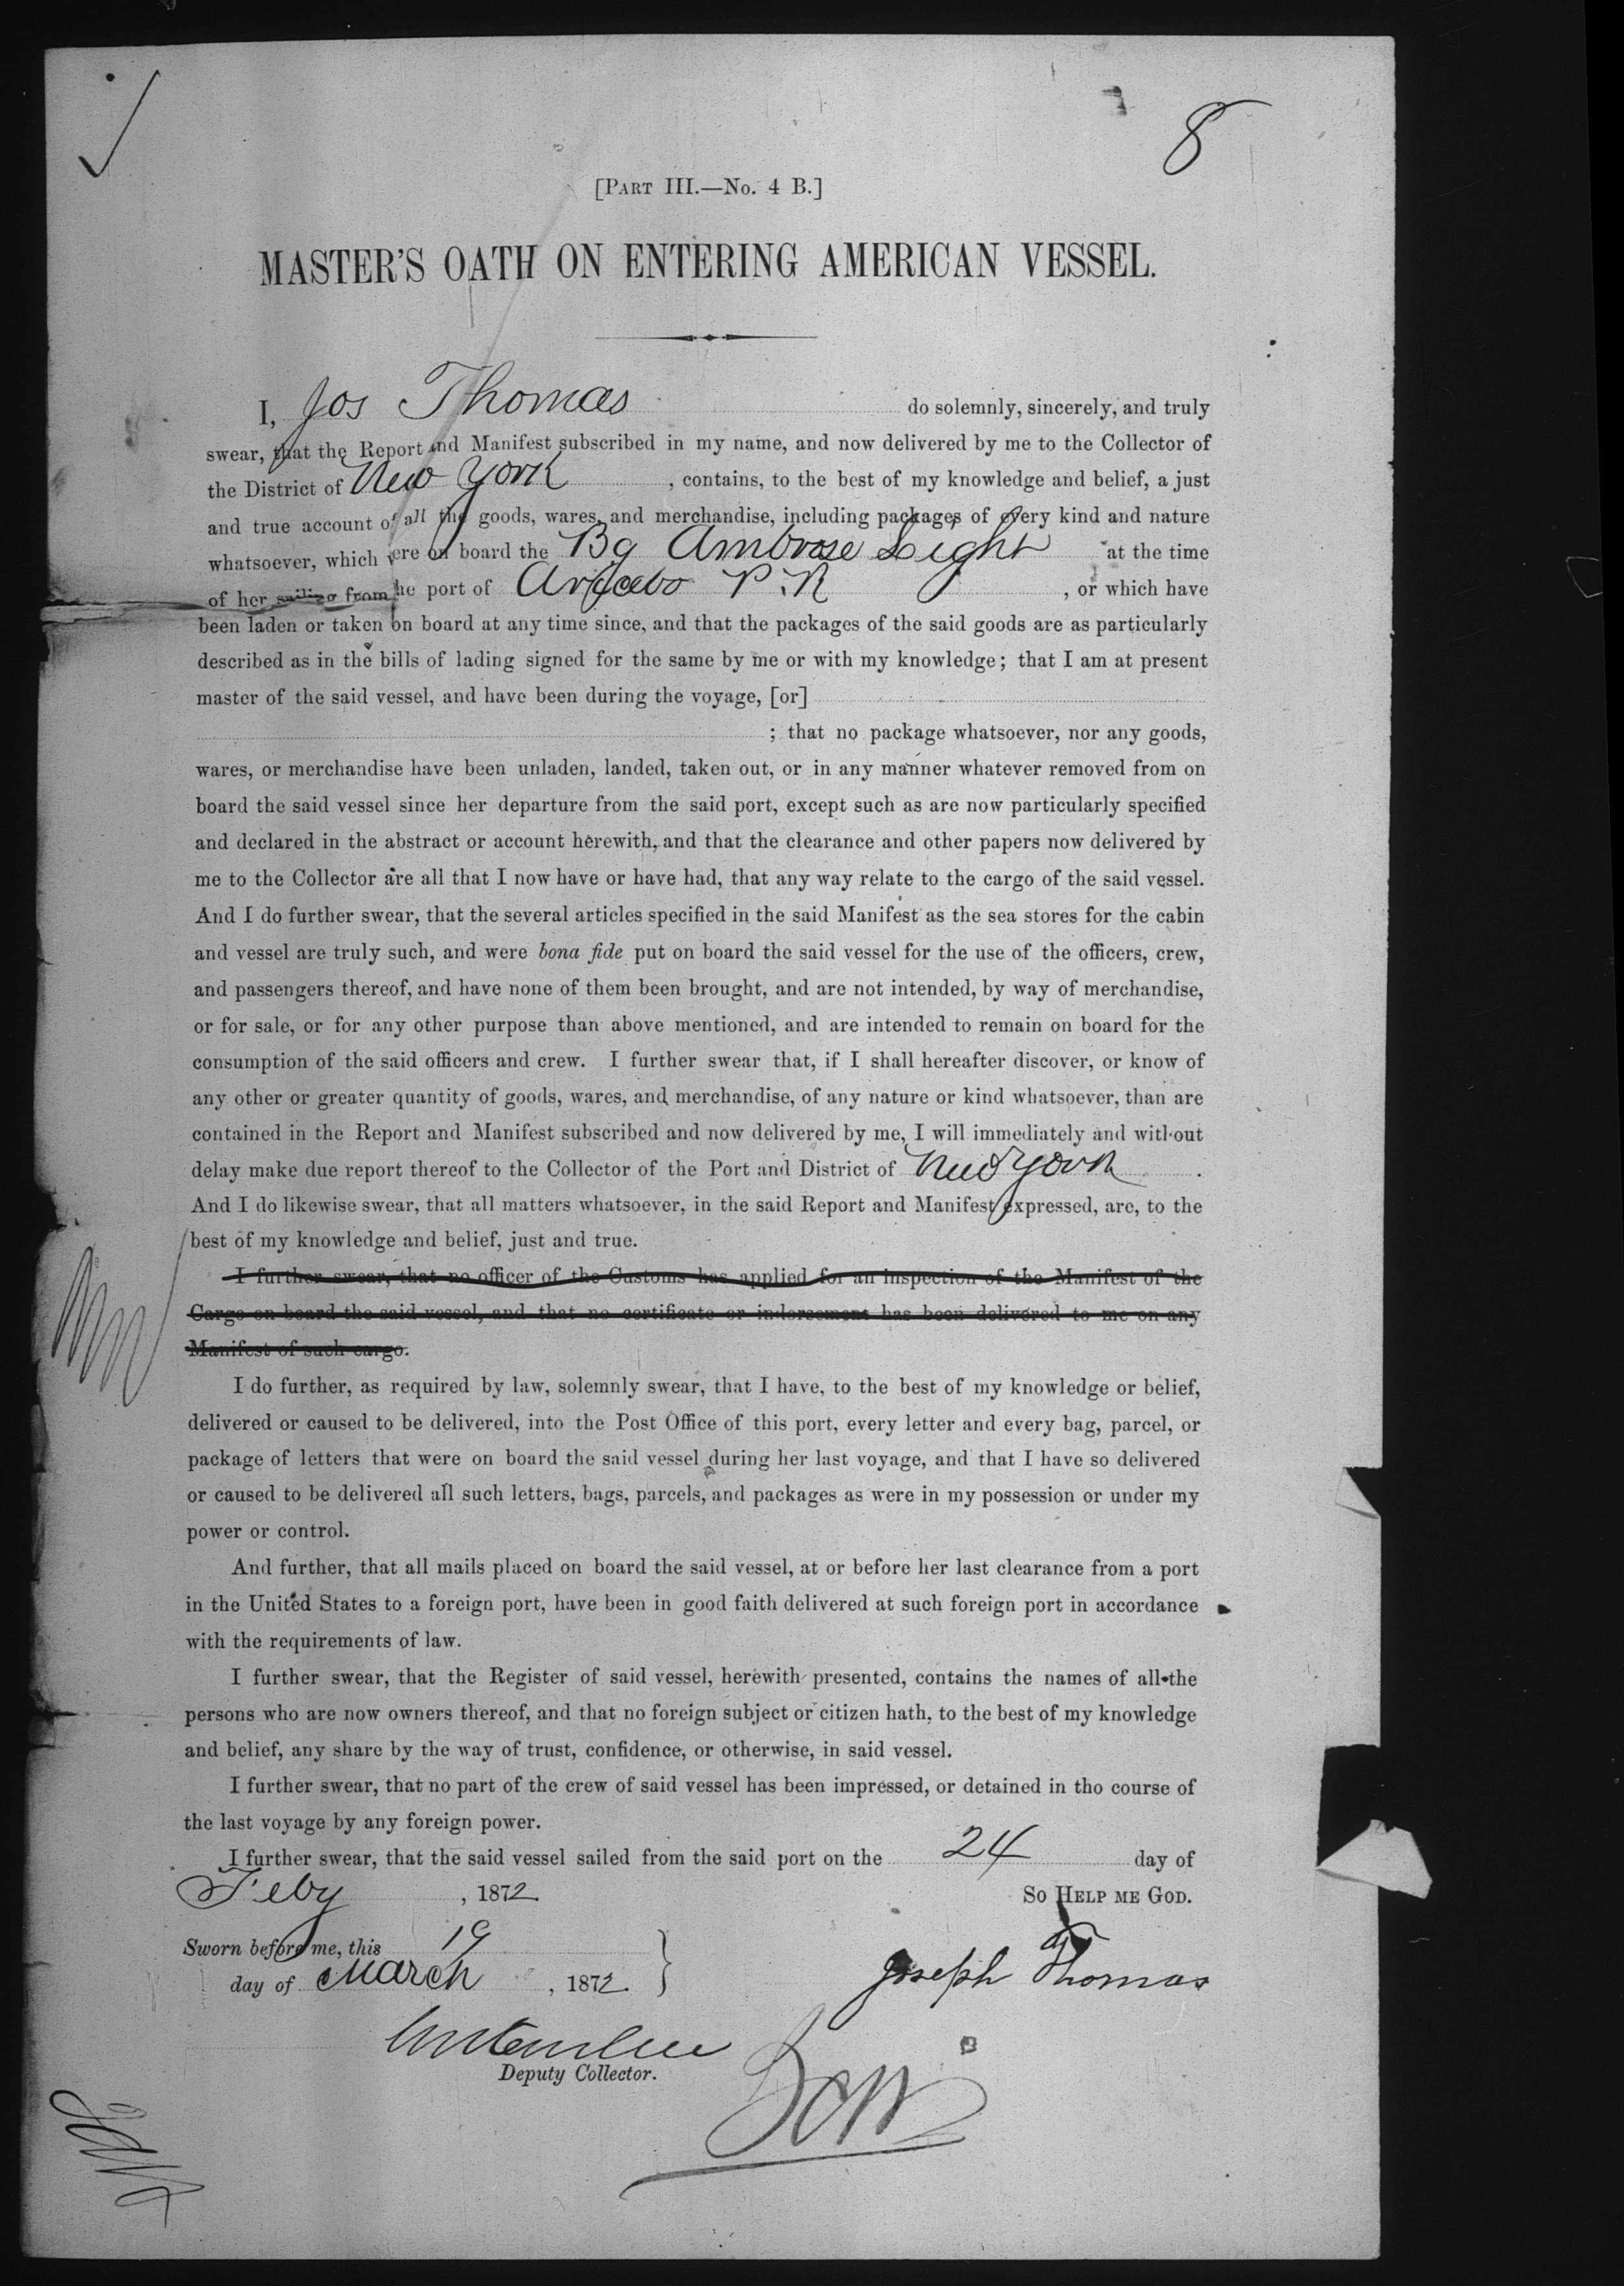 8
[PART III.—No. 4 B.]
MASTER'S OATH ON ENTERING AMERICAN VESSEL.
I, Jos Thomas do solemnly, sincerely, and truly
swear, that the Report and Manifest subscribed in my name, and now delivered by me to the Collector of
the District of New York, contains, to the best of my knowledge and belief, a just
and true account of all the goods, wares, and merchandise, including packages of every kind and nature
whatsoever, which were on board the Bg Ambrose Light at the time
of her sailing from the port of Arecebo P.R, or which have
been laden or taken on board at any time since, and that the packages of the said goods are as particularly
described as in the bills of lading signed for the same by me or with my knowledge; that I am at present
master of the said vessel, and have been during the voyage, [or]
; that no package whatsoever, nor any goods,
wares, or merchandise have been unladen, landed, taken out, or in any manner whatever removed from on
board the said vessel since her departure from the said port, except such as are now particularly specified
and declared in the abstract or account herewith, and that the clearance and other papers now delivered by
me to the Collector are all that I now have or have had, that any way relate to the cargo of the said vessel.
And I do further swear, that the several articles specified in the said Manifest as the sea stores for the cabin
and vessel are truly such, and were bona fide put on board the said vessel for the use of the officers, crew,
and passengers thereof, and have none of them been brought, and are not intended, by way of merchandise,
or for sale, or for any other purpose than above mentioned, and are intended to remain on board for the
consumption of the said officers and crew. I further swear that, if I shall hereafter discover, or know of
any other or greater quantity of goods, wares, and merchandise, of any nature or kind whatsoever, than are
contained in the Report and Manifest subscribed and now delivered by me, I will immediately and without
delay make due report thereof to the Collector of the Port and District of New York.
And I do likewise swear, that all matters whatsoever, in the said Report and Manifest expressed, are, to the
best of my knowledge and belief, just and true.
I further swear, that no officer of the Customs has applied for an inspection of the Manifest of the
Cargo on board the said vessel, and that no certificate or indorsement has been delivered to me on any
Manifest of such cargo.
I do further, as required by law, solemnly swear, that I have, to the best of my knowledge or belief,
delivered or caused to be delivered, into the Post Office of this port, every letter and every bag, parcel, or
package of letters that were on board the said vessel during her last voyage, and that I have so delivered
or caused to be delivered all such letters, bags, parcels, and packages as were in my possession or under my
power or control.
And further, that all mails placed on board the said vessel, at or before her last clearance from a port
in the United States to a foreign port, have been in good faith delivered at such foreign port in accordance
with the requirements of law.
I further swear, that the Register of said vessel, herewith presented, contains the names of all the
persons who are now owners thereof, and that no foreign subject or citizen hath, to the best of my knowledge
and belief, any share by the way of trust, confidence, or otherwise, in said vessel.
I further swear, that no part of the crew of said vessel has been impressed, or detained in tho course of
the last voyage by any foreign power.
I further swear, that the said vessel sailed from the said port on the 24 day of
Feby, 1872 SO HELP ME GOD.
Sworn before me, this 19
day of March, 1872. Joseph Thomas
Deputy Collector.